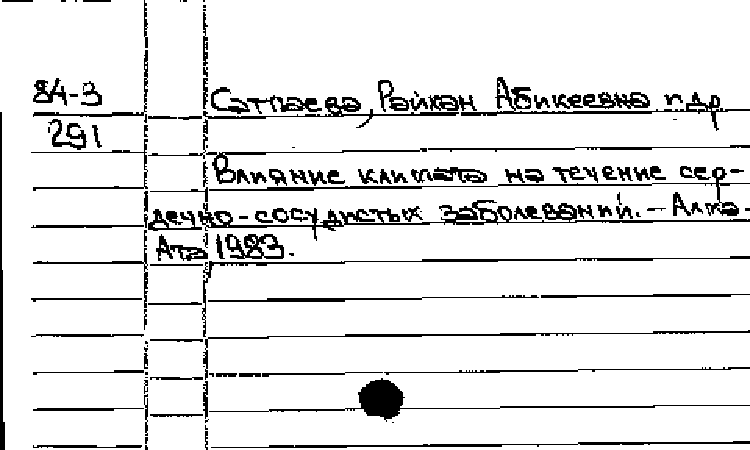 84-3 Сатпаева, Райхан Абикеевна и др
291
Влияние климата на течение сер-
дечно-сосудистых заболеваний. - Алма-
Ата, 1983.